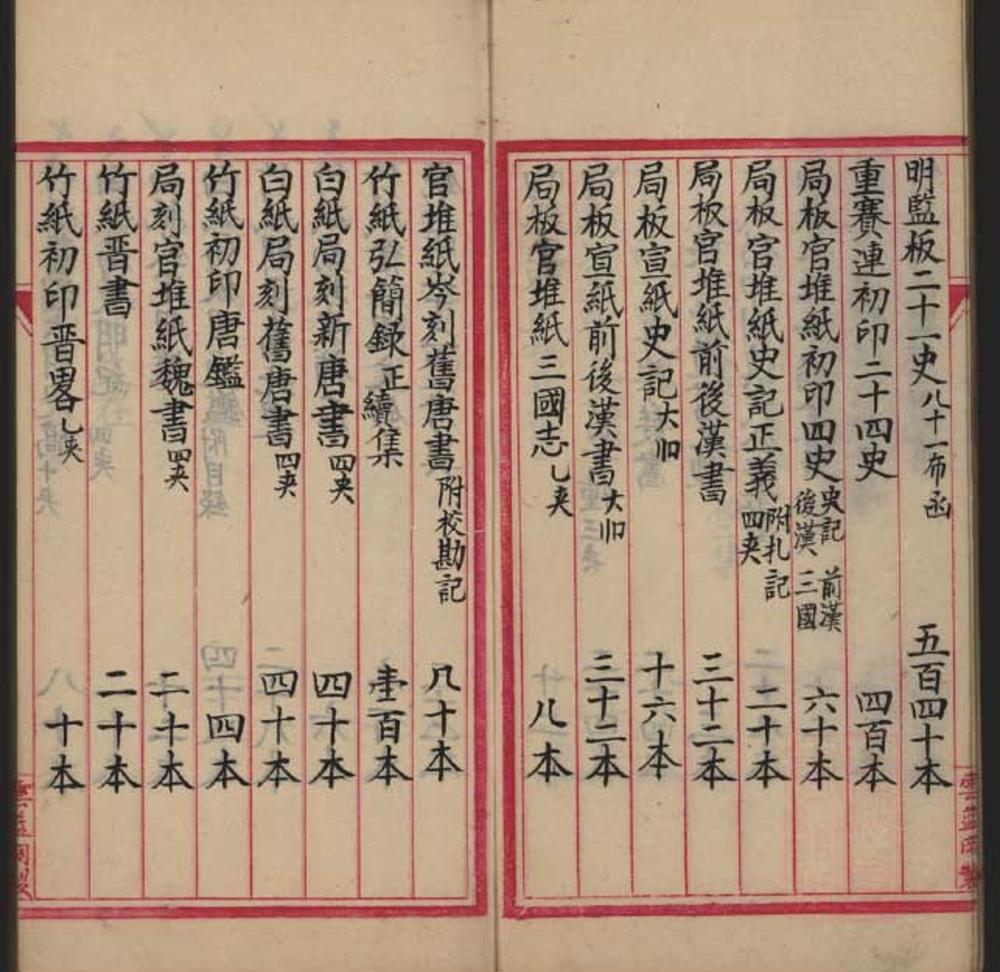 明監板二十一史 八十一布函 五百四十本
重賽連初印二十四史 四百本
局板官堆紙初印四史 史記 前漢 後漢 三國 六十本
局板官堆紙史記正義 附札記 四夾 二十本
局板官堆紙前後漢書 三十二本
局板宣紙史記 大 十六本
局板宣紙前後漢書 大 三十二本
局板官堆紙三國志 乚夾 八本
官堆紙岑刻舊唐書 附校勘記 八十本
竹紙弘簡録 正續集 壹百本
白紙局刻新唐書 四夾 四十本
白紙局刻舊唐書 四夾 四十本
竹紙初印唐鑑 四本
局刻官堆紙魏書 四夾 二十本
竹紙晋書 二十本
竹紙初印晋畧 乚夾 十本